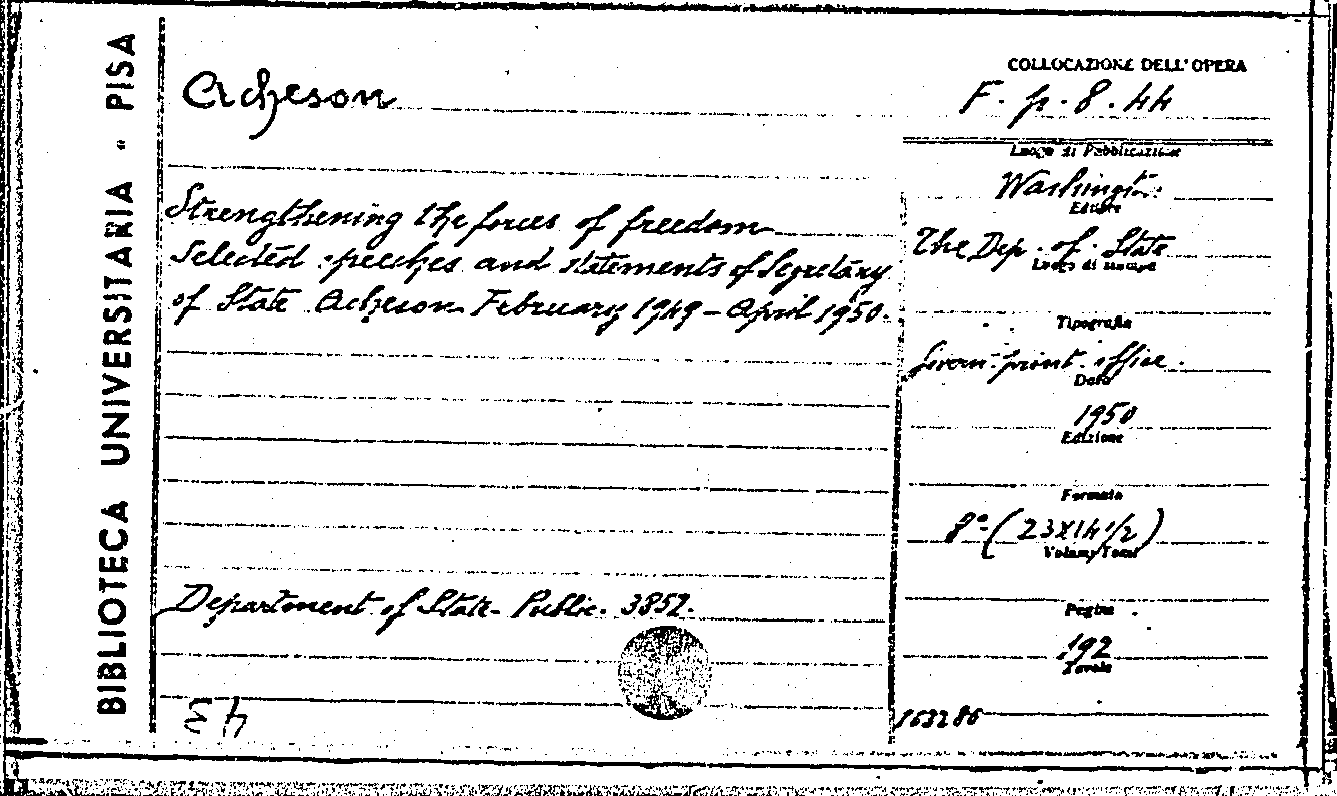 BIBLIOTECA UNIVERSITARIA - PISA
Acheson
Strengthening the forces of freedom
Selected speeches and statements of Secretary
of State Acheson February 1949 - April 1950.
Department of State - Public. 3852.
COLLOCAZIONE DELL'OPERA
F. p. 8. 44
Luogo di Pubblicazione
Washington
Editore
The Dep. of State
Luogo di stampa
Tipografia
Govern. print. office.
Data
1950
Edizione
Formato
8° (23X14 1/2)
Volumi Tomi
Pagine
192
Tavole
163286